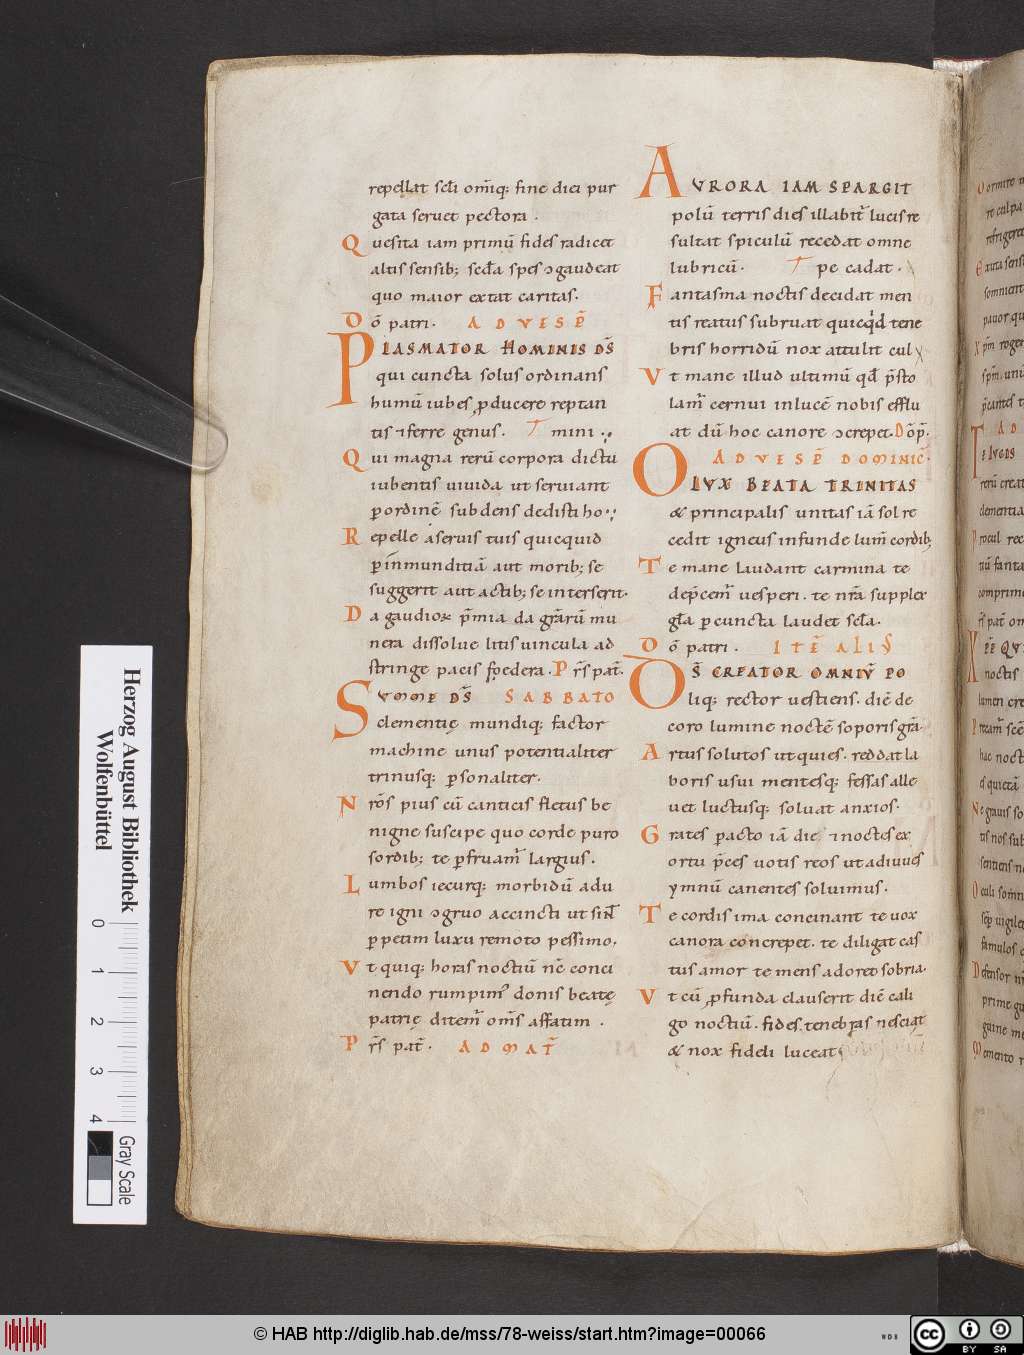 repellat scli omiq; sine diei pur
gata seruet pectora .
Quesita iam primū fides radicet
altis sensib; secda spes ɔgaudeat
quo maior extat caritas.
Dō patri. AD VESP̄
PLASMATOR HOMINIS DS̄
qui cuncta solus ordinans
humū iubes ꝓducere reptan
tis ⁊ ferre genus. mini
Qui magna rerū corpora dictu
iubentis uiuida ut seruiant
ꝑ ordinē subdens dedisti ho
Repelle a seruis tuis quicquid
ꝑ inmunditiā aut morib; se
suggerit aut actib; se interserit.
Da gaudioꝝ p̄mia da grarū mu
nera dissolue litis uincula ad
stringe pacis foedera. Prs pat.
SVMME DS̄ SABBATO
clementię mundiq; factor
machine unus potentialiter
trinusq; ꝑsonaliter.
Nros pius cū canticis fletus be
nigne suscipe quo corde puro
sordib; te ꝑfruam largius.
Lumbos iecurq; morbidū adu
re igni ɔgruo accincti ut sint
ꝑpetim luxu remoto pessimo.
Vt quiq; horas noctiū nc̄ conci
nendo rumpim' donis beatę
patrię ditem oms affatim .
Prs pat. AD MAT
AURORA IAM SPARGIT
polū terris dies illabit lucis re
sultat spiculū recedat omne
lubricū. pe cadat.
Fantasma noctis decidat men
tis reatus subruat quicqd tene
bris horridū nox attulit cul
Vt mane illud ultimū qd p̄sto
lam cernui in lucē nobis efflu
at dū hoc canore ɔcrepet. Dō p̄.
AD VESP̄ DOMINIC.
O LVX BEATA TRINITAS
& principalis unitas iā sol re
cedit igneus infunde lum cordib;
Te mane laudant carmina te
dep̄cem uesperi. te nr̄a supplex
gla ꝑ cuncta laudet scla.
Dō patri. ITĒ ALIS
DS̄ CREATOR OMNIŪ PO
liq; rector uestiens. diē de
coro lumine noctē soporis grā.
Artus solutos ut quies. reddat la
boris usui mentesq; fessas alle
uet luctusq; soluat anxios.
Grates ꝑacto iā die ⁊ noctes ex
ortu p̄ces uotis reos ut adiuues
ymnū canentes soluimus.
Te cordis ima concinant te uox
canora concrepet. te diligat cas
tus amor te mens adoret sobria.
Vt cū ꝓfunda clauserit diē cali
go noctiū. fides tenebras nesciat
& nox fideli luceat
Herzog August Bibliothek
Wolfenbüttel
0 1 2 3 4
Gray Scale
© HAB http://diglib.hab.de/mss/78-weiss/start.htm?image=00066
WDB
cc BY SA